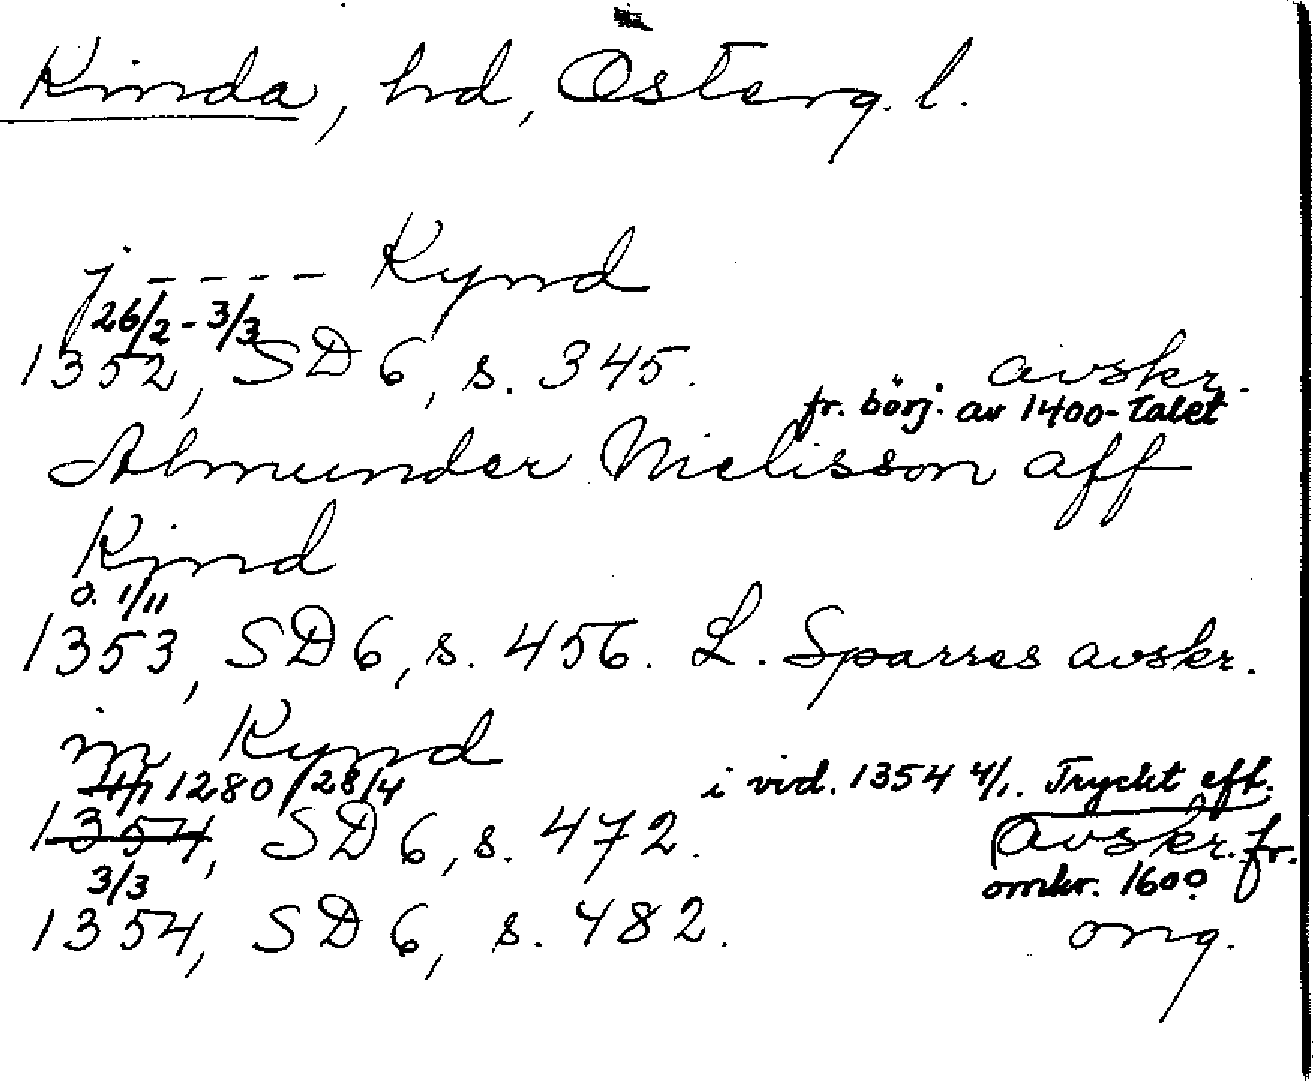 Kinda, hd, Österg. l.
j - - - - Kynd
26/2 - 3/3
1352, SD 6, s. 345. avskr.
fr. börj. av 1400-talet
Almunder Nielisson aff
Kijnd
o. 1/11
1353, SD 6, s. 456. L. Sparres avskr.
in Kynd
4/1 1280 /28/4 i vid. 1354 4/1. Tryckt eft.
1354, SD 6, s. 472. avskr. fr.
omkr. 1600
3/3
1354, SD 6, s. 482. orig.